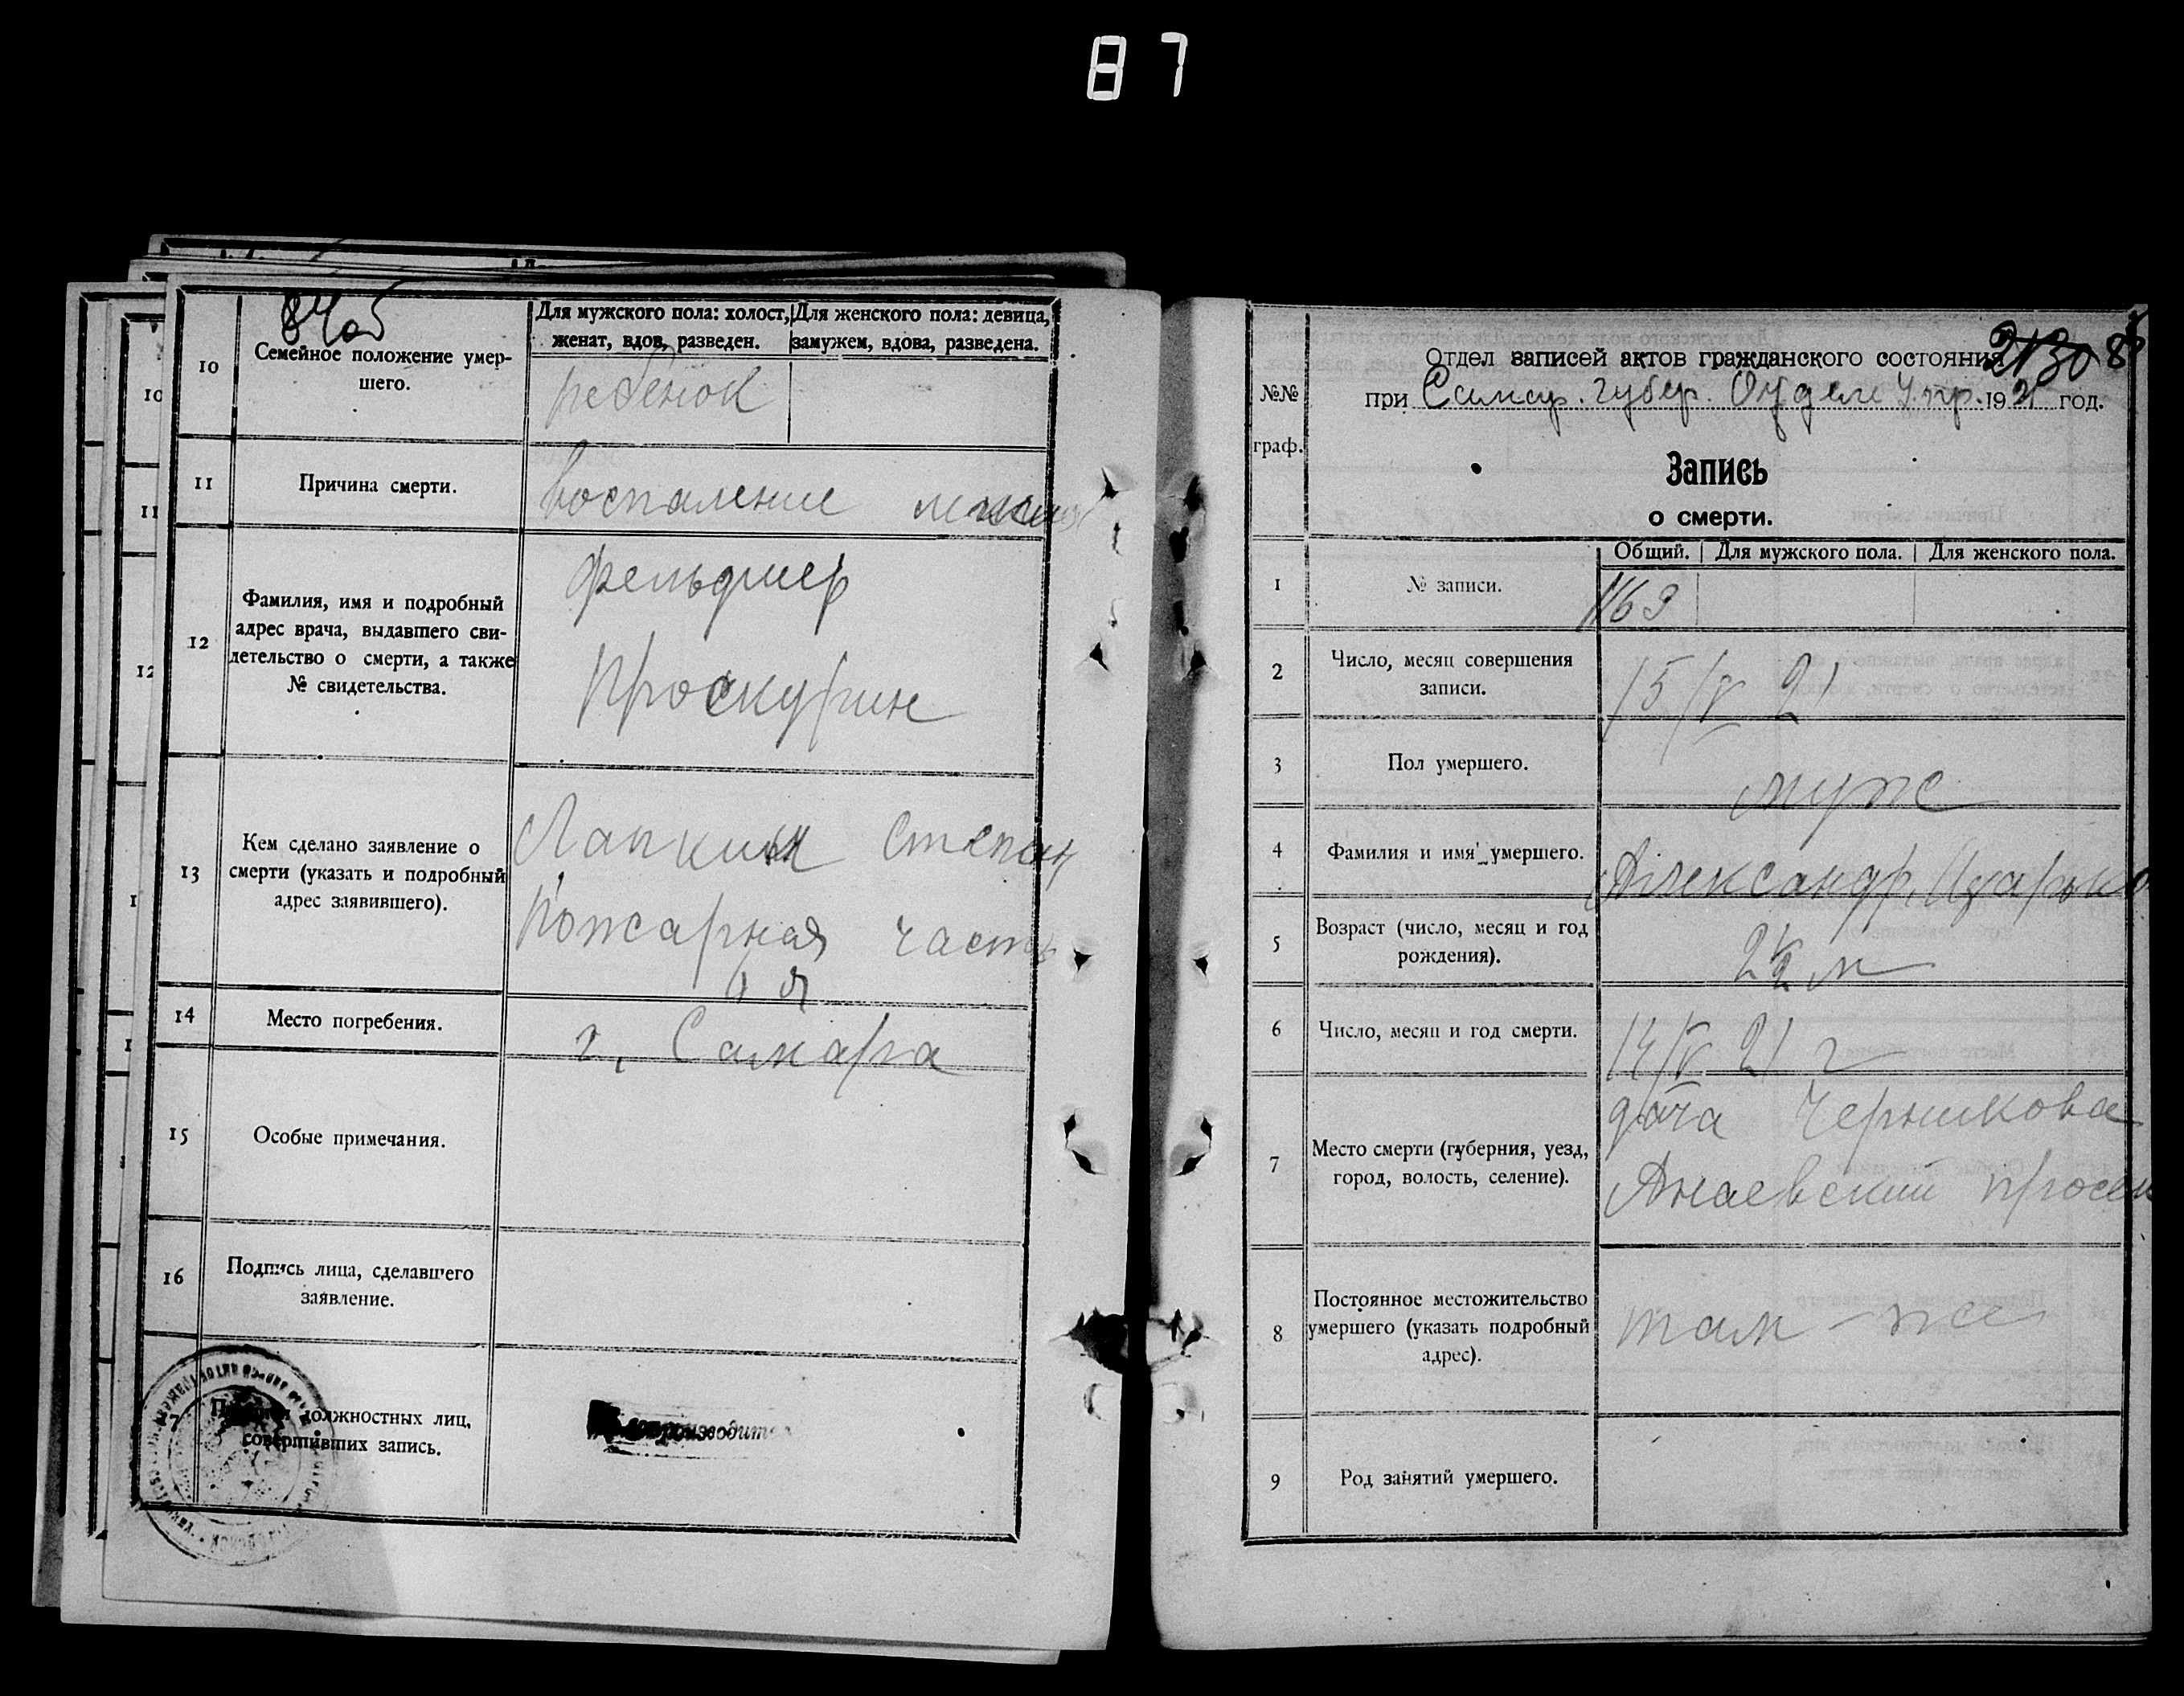 87
84об
10
Семейное положение умер-
шего.
Для мужского пола: холост,
женат, вдов, разведен.
Для женского пола: девица,
замужем, вдова, разведена.
ребенок
11
Причина смерти.
воспаление
12
Фамилия, имя и подробный
адрес врача, выдавшего сви-
детельство о смерти, а также
№ свидетельства.
фельдшер
Проскурин
13
Кем сделано заявление о
смерти (указать и подробный
адрес заявившего).
Лапкин Степан
Пожарная часть
14
Место погребения.
г. Самара
15
Особые примечания.
16
Подпись лица, сделавшего
заявление.
должностных лиц,
совершивших запись.
Отдел записей актов гражданского состояния
при Самар. губер. Отделе Упр. 1921 год.
№№
граф.
Запись
о смерти.
Общий. Для мужского пола. Для женского пола.
1
№ записи.
1169
2
Число, месяц совершения
записи.
15/V 21
3
Пол умершего.
муж
4
Фамилия и имя умершего.
Александр
5
Возраст (число, месяц и год
рождения).
2½ м
6
Число, месяц и год смерти.
14/V 21 г
7
Место смерти (губерния, уезд,
город, волость, селение).
дача Черникова
Анаевский просек
8
Постоянное местожительство
умершего (указать подробный
адрес).
там-же
9
Род занятий умершего.